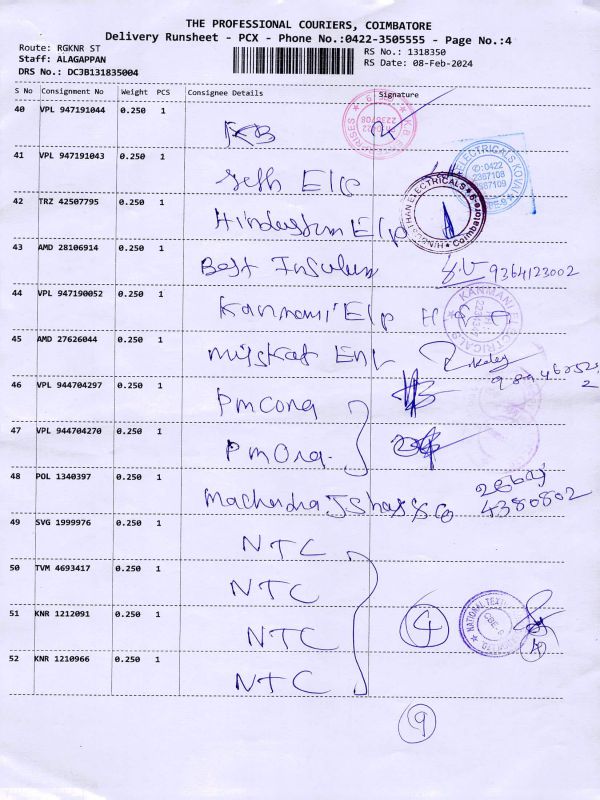 THE PROFESSIONAL COURIERS, COIMBATORE
Delivery Runsheet - PCX - Phone No.:0422-3505555 - Page No.:4
Route: RGKNR ST
RS No.: 1318350
Staff: ALAGAPPAN
RS Date: 08-Feb-2024
DRS No.: DC3B131835004
S No Consignment No Weight PCS Consignee Details Signature
40 VPL 947191044 0.250 1
KB
41 VPL 947191043 0.250 1
Seth Elp
42 TRZ 42507795 0.250 1
Hindustan Elp
HINDUSTHAN ELECTRICALS Coimbatore
43 AMD 28106914 0.250 1
Best Insulun 9364123002
44 VPL 947190052 0.250 1
Kanmani Elp
KANMANI ELECTRICALS
45 AMD 27626044 0.250 1
46 VPL 944704297 0.250 1
Pmcona
47 VPL 944704270 0.250 1
PmOna.
48 POL 1340397 0.250 1
Machendra J Shax & Co
4380802
49 SVG 1999976 0.250 1
NTC
50 TVM 4693417 0.250 1
NTC
51 KNR 1212091 0.250 1
NTC 4
NATIONAL
52 KNR 1210966 0.250 1
NTC
9